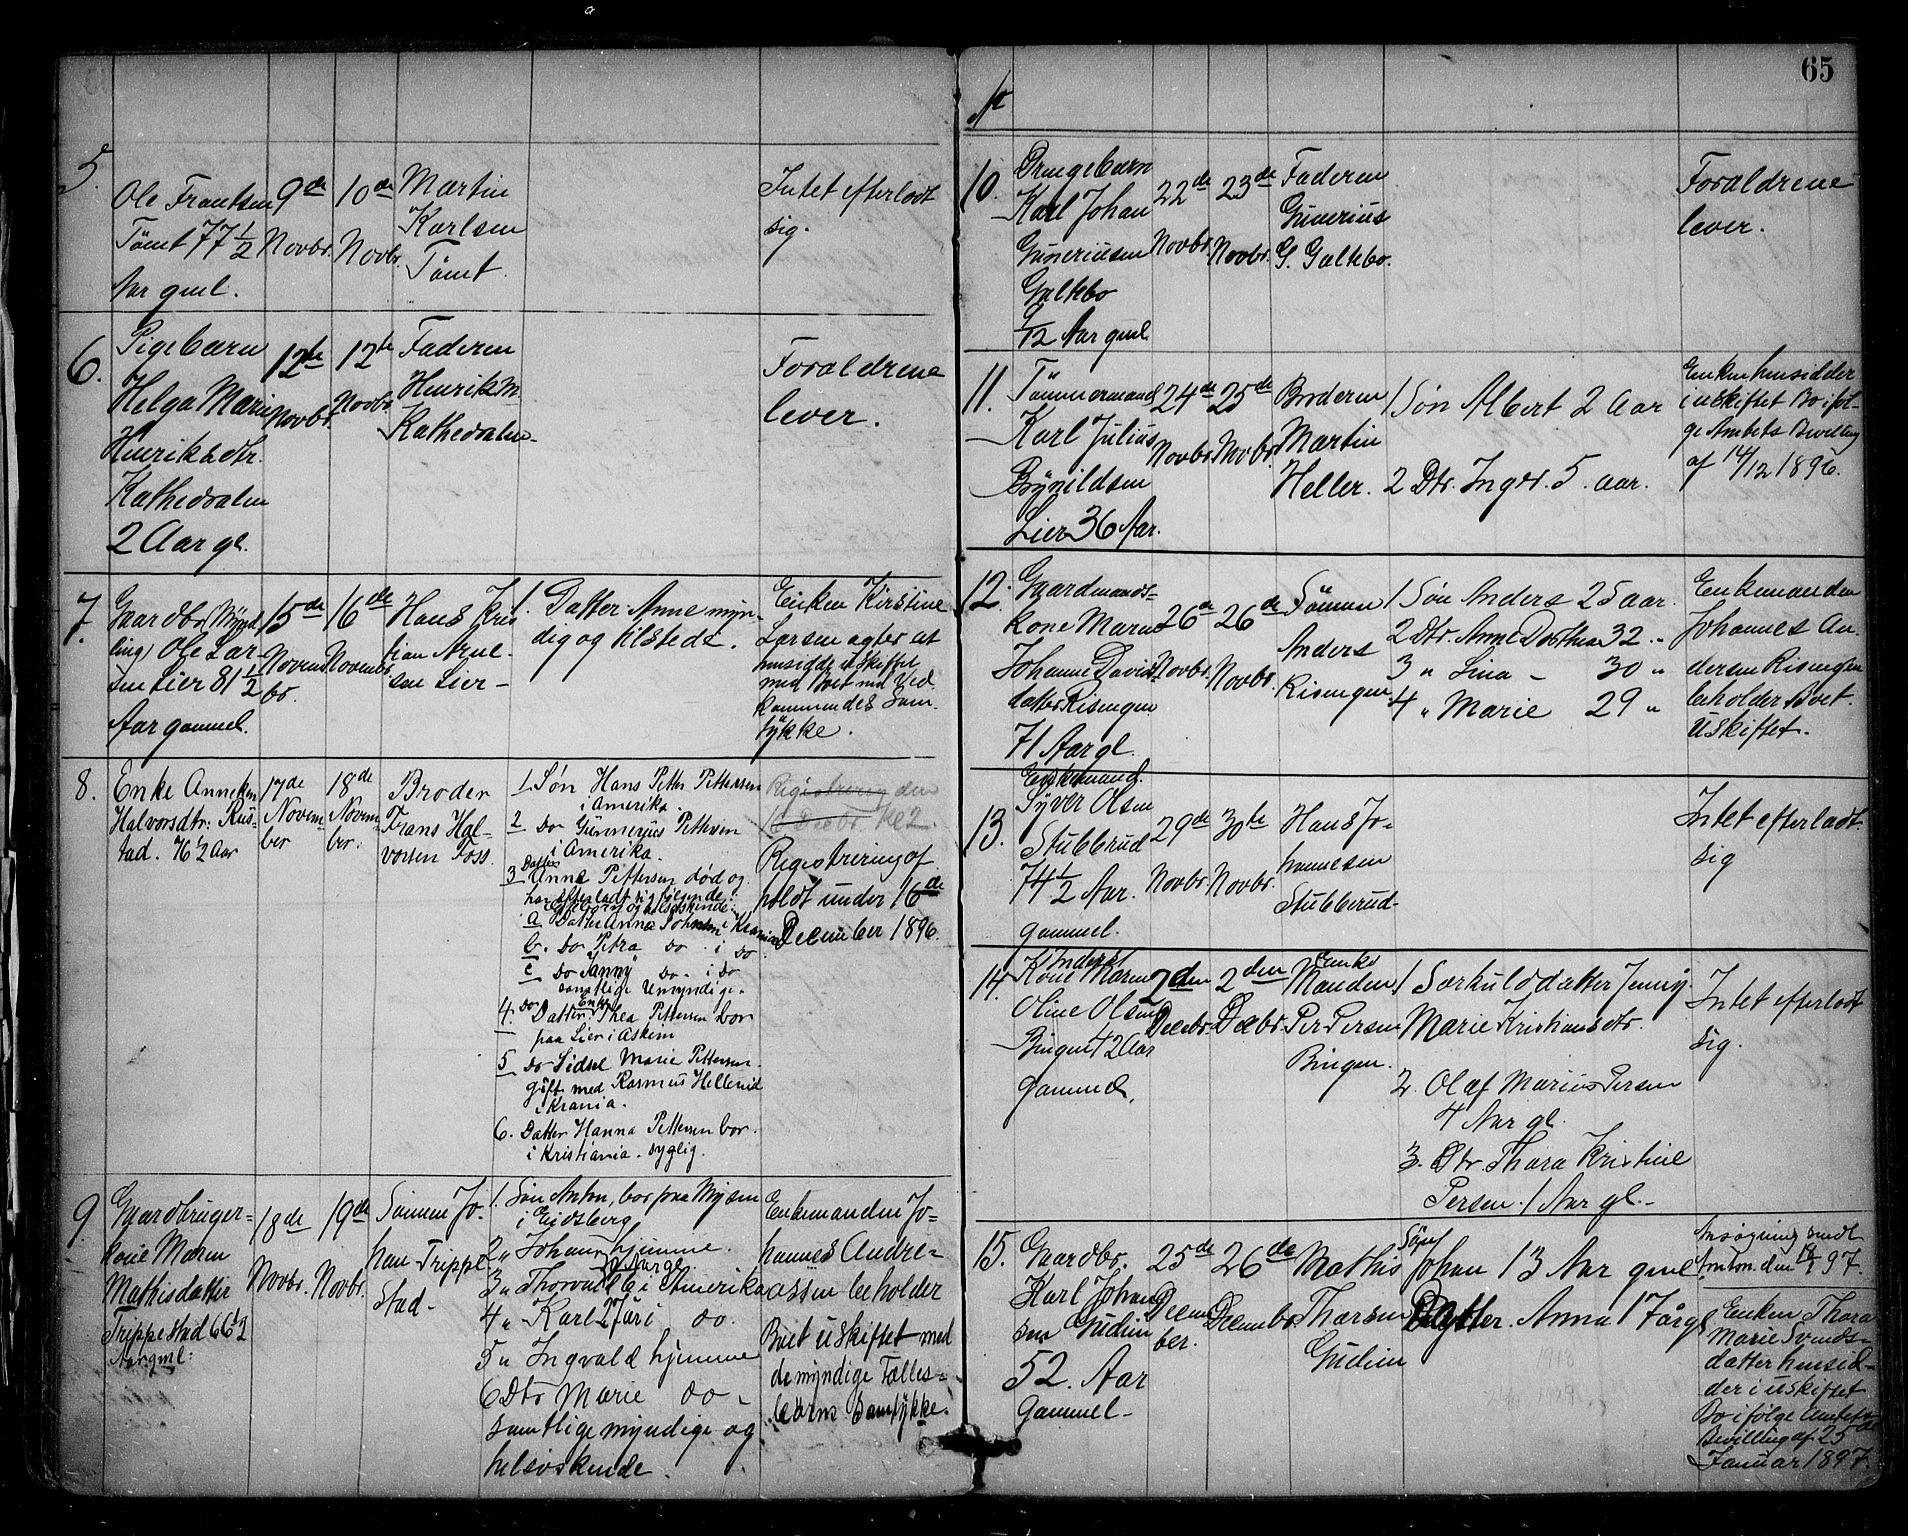 65
№
5.
Ole Frantsen
Tömt 77 1/2
Aar gml.
9de
Novbr.
10de
Novbr.
Martin
Karlsen
Tömt.
Intet efterladt
sig.
6.
Pigebarn
Helga Marie
Henriksdtr.
Kathedralen
2 Aar gl.
12te
Novbr.
12te
Novbr.
Faderen
Henrik M.
Kathedralen
Foraldrene
lever.
7.
Gaardbr. (Mynd
ling) Ole Lar-
sen Lier 81 1/2
Aar gammel.
15de
Novem
br.
16de
Novembr.
Hans Kris
tian Arne-
sen Lier
1. Datter Anne myn-
dig og tilstede.
Enken Kirstine
Larsen agter at
hensidde i uskiftet
med Boet med Ved-
kommendes Sam-
tykke.
8.
Enke Anneken
Halvorsdtr: Rus-
tad. 76 1/2 Aar
17de
Novem-
ber
18de
Novem-
ber.
Broder
Frans Hal-
vorsen Foss.
1. Søn Hans Petter Pettersen
i Amerika.
2 Do Gunnerius Pettersen
i Amerika.
Datter
3 Anna Pettersen død og
har efterladt sig følgende
a Datter Anna Johnsen i Krania
b. Do Petra do i do
c Do Janny do. i do
samtlige Umyndige.
4. Do Enke
Datter. Thea Pettersen bor
paa Lier i Askim
5 do Sidsel Marie Pettersen
gift med Rasmus Hellerud
i Krania.
6. Datter Hanna Pettersen bor
i Kristiania. syglig.
Registrering den
16 Decbr. Kl 2.
Registrering af
holdt under 16de
December 1896.
9
Gaardbruger-
kone Maren
Mathisdatter
Trippestad 66 1/2
Aar gml:
18de
Novbr.
19de
Novbr.
Sønnen Jo-
han Trippe
stad-
1. Søn Anton, bor paa Mysen
i Eidsberg
2 " Johan, hjemme.
3 " Thorvald i Amerika
4 " Karl 27 år i do.
5 " Ingvald hjemme
6 Dtr Marie do -
samtlige myndige og
helsøskende.
Enkemanden Jo-
hannes Andre-
assen beholder
Boet uskiftet med
de myndige Fælles-
børns Samtykke.
10.
Drengebarn
Karl Johan
Gunneriusen
Galtebo
9/12 Aar gml.
22de
Novbr.
23de
Novbr.
Faderen
Gunerius
G. Galtebo.
Foraldrene
lever.
11.
Tömmermand
Karl Julius
Brynildsen
Lier 36 Aar.
24de
Novbr.
25de
Novbr.
Broderen
Martin
Heller.
1 Søn Albert 2 Aar
2 Dtr. Inger. 5. aar.
Enken hensidder
i uskiftet Bo iføl-
ge Amtets Bevilling
af 14/12 1896.
12.
Gaardmands-
kone Maren
Johanne Davids
datter Risengen
71 Aar gl.
26de
Novbr.
26de
Novbr.
Sønnen
Anders
Risengen
1 Søn Anders 25 aar.
2 Dtr. Anne Dorthea 32 "
3 " Lina - 30 "
4 " Marie 29 "
Enkemanden
Johannes An-
dersen Risengen
beholder Boet
Uskiftet.
13.
Enkemand.
Syver Olsen
Stubberud
74 1/2 Aar.
gammel.
29de
Novbr.
30te
Novbr.
Hans Jo-
hannesen
Stubberud-
Intet efterladt
sig
14.
Inderst
Kone Maren
Oline Olsen
Bingen 42 Aar
gammel,
2den
Decbr.
2den
Decbr.
Enke
Manden
Per Persen
Bingen.
1 Særkulsdatter Jenny
Marie Kristiansdtr.
2. Olaf Marius Persen
4 Aar gl.
3. Dtr Thora Kristine
Persen. 1 Aar gl.-
Intet efterladt
sig.
15.
Gaardbr.
Karl Johan
sen Gudim
52. Aar
Gammel-
25de
Decem
ber.
26de
Decembr
Mathis
Thorsen
Gudim
Søn
Johan 13 Aar gml.
Datter. Anna 17 år gl
Ansøgning sendt
Amtm. den 18/1 97.
Enken Thora
Marie Svends-
datter hensid-
der i uskiftet
Bo ifølge Amtets
Bevilling af 25de
Januar 1897.